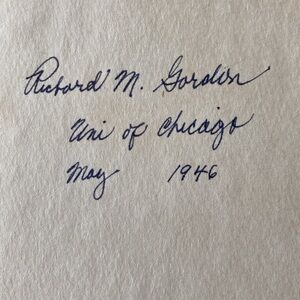 Richard M. Gordon
Uni of Chicago
May 1946